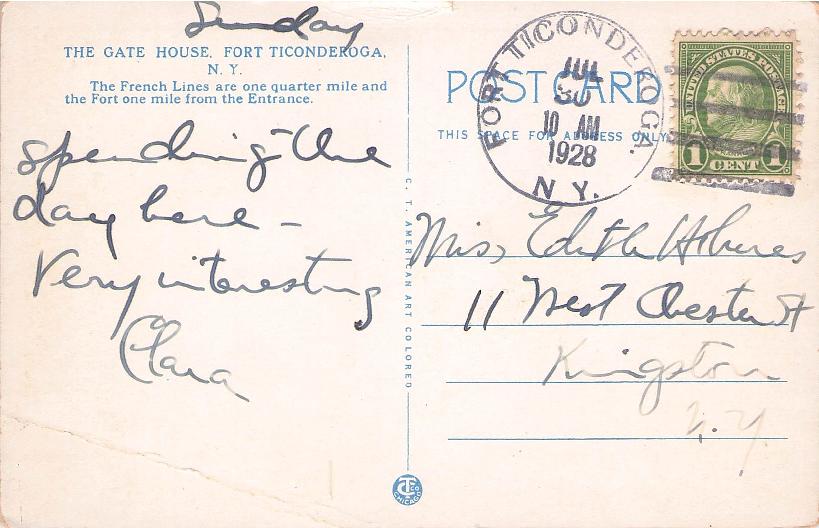 Sunday
THE GATE HOUSE, FORT TICONDEROGA,
N. Y.
The French Lines are one quarter mile and
the Fort one mile from the Entrance.
spending the
day here –
Very interesting
Clara
C. T. AMERICAN ART COLORED
CT CO CHICAGO
POST CARD
THIS SPACE FOR ADDRESS ONLY
FORT TICONDEROGA.
JUL
30
10 AM
1928
N. Y.
UNITED STATES POSTAGE
1 CENT 1
Miss Edith Holmes
11 West Chester St
Kingston
N.Y.